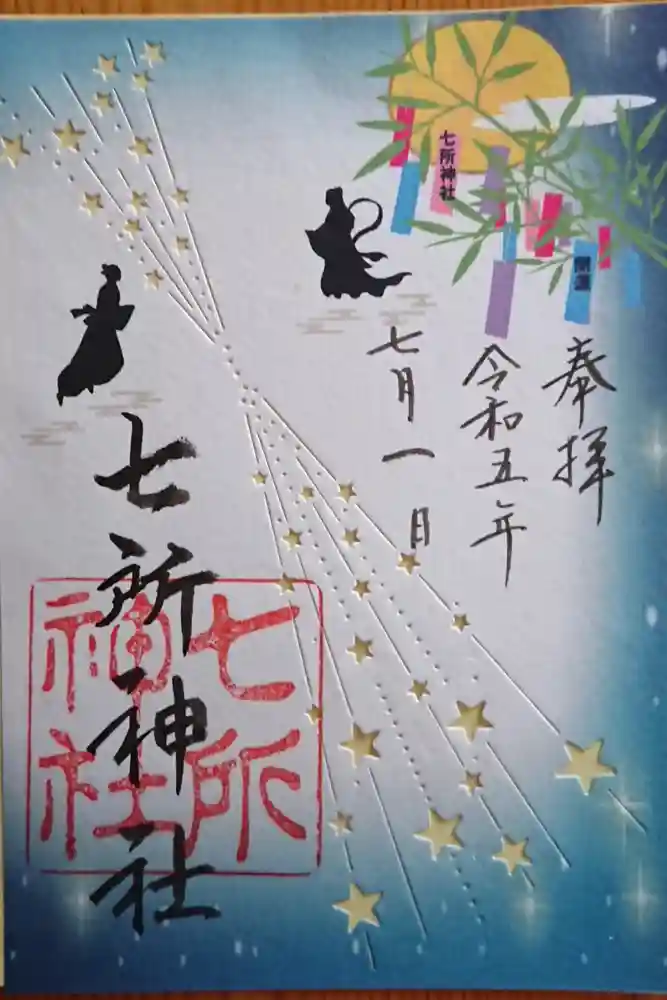 奉拝
令和五年
七月一日
七所神社
七所神社
七所神社
開運